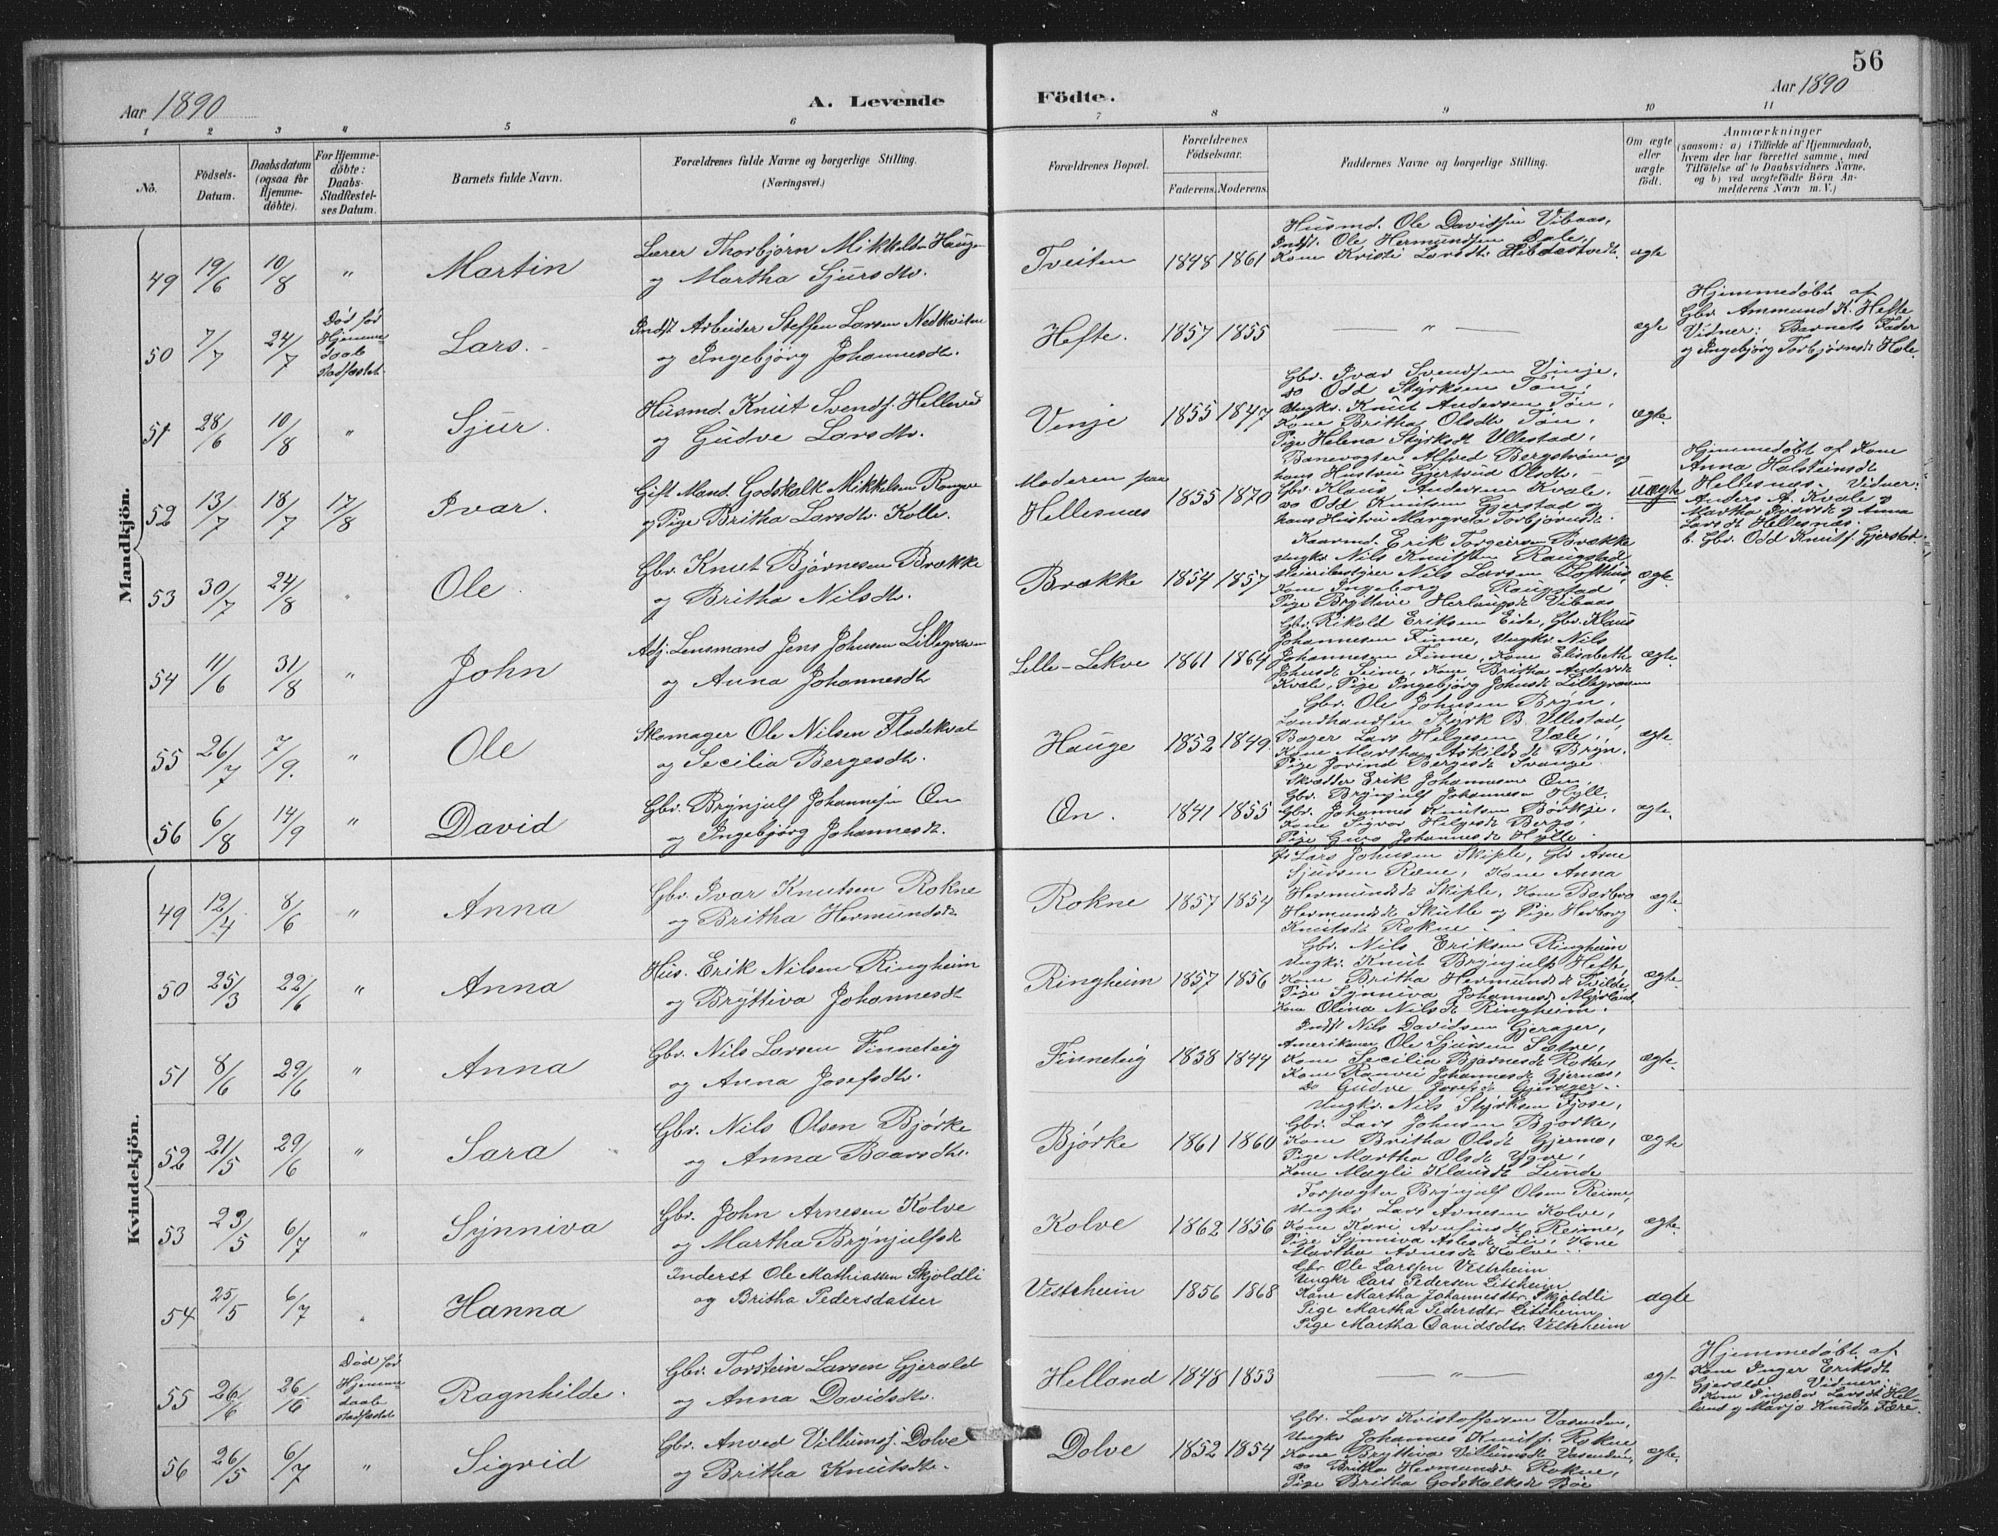 56
Aar 1890
A. Levende Födte.
Aar 1890
1 2 3 4 5 6 7 8 9 10 11
No.
Fødsels-Datum.
Daabsdatum (ogsaa for Hjemmedöbte).
For Hjemmedöbte: Daabs-Stadfæstelses Datum.
Barnets fulde Navn.
Forældrenes fulde Navne og borgerlige Stilling. (Næringsvei.)
Forældrenes Bopæl.
Forældrenes Födselsaar.
Faderens. Moderens.
Faddernes Navne og borgerlige Stilling.
Om ægte eller uægte födt.
Anmærkninger
(saasom: a) i Tilfælde af Hjemmedaab, hvem der har forrettet samme, med Tilföielse af to Daabsvidners Navne, og b) ved uægtefödte Börn Anmelderens Navn m. V.)
Mandkjön.
49 19/6 10/8 " Martin
Lærer Thorbjörn Mikkelsen Hauge
og Martha Sjursdtr.
Tveiten 1848 1861
Husmd. Ole Davidsen Vibaas,
Indst. Ole Hermundsen Dale,
Kone Kristi Larsdtr.
ægte
50 7/7 24/7
Död för
Hjemme
daab
stadfæstet
Lars.
Indst Arbeider Steffen Larsen Nedkvitne
og Ingebjörg Johannesdtr.
Hefte. 1857 1855 — " — ægte
Hjemmedöbt af
Gbr. Ammund K. Hefte
Vidner: Barnets Fader
og Ingebjörg Torbjörnsdt Hole
51 28/6 10/8 " Sjur.
Husmd. Knut Svendsf. Helleve
og Gudve Larsdtr.
Vinje 1855 1847
Gbr. Ivar Svendsen Vinje,
do Odd Styrksen Tön,
Ungkr. Knut Andersen Tön,
Kone Britha Olsdtr Tön,
Pige Helena Styrksdt Ullestad,
ægte
52 13/7 18/7 17/8 Ivar.
Gift Mand. Godskalk Mikkelsen Rongve
og Pige Britha Larsdtr. Kolle.
Moderen paa
Hellesnæs 1855 1870
Banevogter Alfred Bergström og
hans Hustru Gjertrud Olsdtr.
Gbr. Klaus Andersen Kvale,
do Odd Knutsen Gjerstad og
hans Hustru Margreta Torbjörnsdt.
uægte
Hjemmedöbt af Kone
Anna Halsteinsdt
Hellesnæs. Vidner:
Anders A. Kvale &
Martha Ivarsdt og Anna
Larsdt Hellesnæs.
b. Gbr. Odd Knutsf. Gjerstad.
53 30/7 24/8 " Ole.
Gbr. Knut Björnesen Brække
og Britha Nilsdtr.
Brække 1854 1857
Kaarmd. Erik Torgeirsen Brække
Ungkr. Nils Knutsen Raugstad,
Meieribestyrer Nils Larsen Lofthus
Kone Ingeborg Raugstad
Pige Bryttive Herlaugsdt Vibaas
ægte.
54 11/6 31/8 " John
Adj. Lensmand Jens Johnsen Lillegraven
og Anna Johannesdtr
Lille-Lekve 1861 1864
Gbr. Rikold Eriksen Eide, Gbr. Klaus
Johannesen Finne, Ungkr. Nils
Johannesen Finne, Kone Elisabethe
Johnsdt Seime, Kone Britha Andersdt
Kvale, Pige Ingebjörg Johnsdt Lillegraven
ægte.
55 26/7 7/9. " Ole
Skomager Ole Nilsen Fladekval
og Secilia Bergesdtr.
Hauge 1852 1849.
Gbr. Ole Johnsen Bryn,
Landhandler Styrk B. Ullestad,
Bager Lars Helgesen Væle,
Kone Martha Askildsdt Bryn.
Pige Jorind Bergesdt Svange.
ægte.
56 6/8 14/9 " David
Gbr. Brynjulf Johannesen Øn
og Ingebjörg Johannesdt.
Øn. 1841 1855
Skrædder Erik Johannesen Øn.
Gbr. Brynjulf Johannesen Hyll.
Gbr. Johannes Knutsen Börkje,
Kone Sigvor Helgesdt Berge,
Pige Guro Johannesdt Hylle
ægte.
Kvindekjön.
49 12/4 8/6 " Anna
Gbr. Ivar Knutsen Rokne
og Britha Hermundsdt
Rokne 1857 1854
Gbr Lars Johnsen Skiple, Gbr Arne
Sjursen Rene, Kone Anna
Hermundsdt Skiple, Kone Barbro
Hermundsdt Skutle og Pige Herborg
Knutsdt Rokne.
ægte.
50 25/3 22/6 " Anna
Hus. Erik Nilsen Ringheim
og Bryttiva Johannesdt
Ringheim 1857 1856
Gbr. Nils Eriksen Ringheim
Ungkr. Knut Brynjulfs Hefte,
Kone Britha Hermundsdt Tvilde,
Pige Synniva Johannesdt Mörland,
Kone Olina Nilsdt Ringheim.
ægte.
51 8/6 29/6 " Anna
Gbr. Nils Larsen Finneteig
og Anna Josefsdtr.
Finneteig 1838 1844
Indst Nils Davidsen Gjerager,
Amerikaner Ole Sjursen Sætve,
Kone Secilia Bjarnesdt Rothe,
Kone Ranvei Johannesdt Gjernæs,
do Gudve Josefsdt Gjerager.
ægte.
52 21/5 29/6 " Sara
Gbr. Nils Olsen Björke
og Anna Baarsdtr.
Björke 1861 1860
Ungkr. Nils Styrksen Fjose,
Gbr. Lars Johnsen Björke,
Kone Britha Olsdt Gjermo,
Pige Martha Olsdt Ygre,
Kone Magli Klausdt Lunde
ægte
53 23/5 6/7 " Synniva
Gbr. John Arnesen Kolve
og Martha Brynjulfsdt
Kolve 1862 1856
Forpagter Brynjulf Olsen Reime,
Ungkr Lars Arnesen Kolve,
Kone Kari Arnfinsdt Reime,
Pige Synniva Aslesdt Lie, Kone
Martha Arnesdt Kolve.
ægte.
54 25/5 6/7 " Hanna
Inderst Ole Mathiassen Skjoldli
og Britha Pedersdatter
Vestrheim 1856 1868
Gbr Ole Larssen Vestrheim
Ungkr Lars Pedersen Litsheim
Kone Martha Johannesdtr Skjoldli
Pige Martha Pedersdtr Litsheim
Pige Martha Davidsdtr. Vestrheim
ægte
55 26/6 26/6
Död för
Hjemme
daab
stadfæstet
Ragnhilde.
Gbr. Torstein Larsen Gjerald
og Anna Davidsdtr.
Helland 1848 1853 — " — ægt.
Hjemmedöbt af
Kone Inger Eriksdt
Gjerald. Vidner:
Kone Ingebor Larsdt Hel-
land og Marjo Knutsdt Fære.
56 26/5 6/7 " Sigrid
Gbr. Anved Villumsf. Dolve
og Britha Knutsdtr.
Dolve 1852 1854
Gbr. Lars Kristoffersen Vasenden,
Ungkr Johannes Knutsf. Rokne
Kone Bryttiva Villumsdt Vasenden,
do Britha Hermundsdt Rokne,
Pige Britha Godskalksdt Böe
ægte.